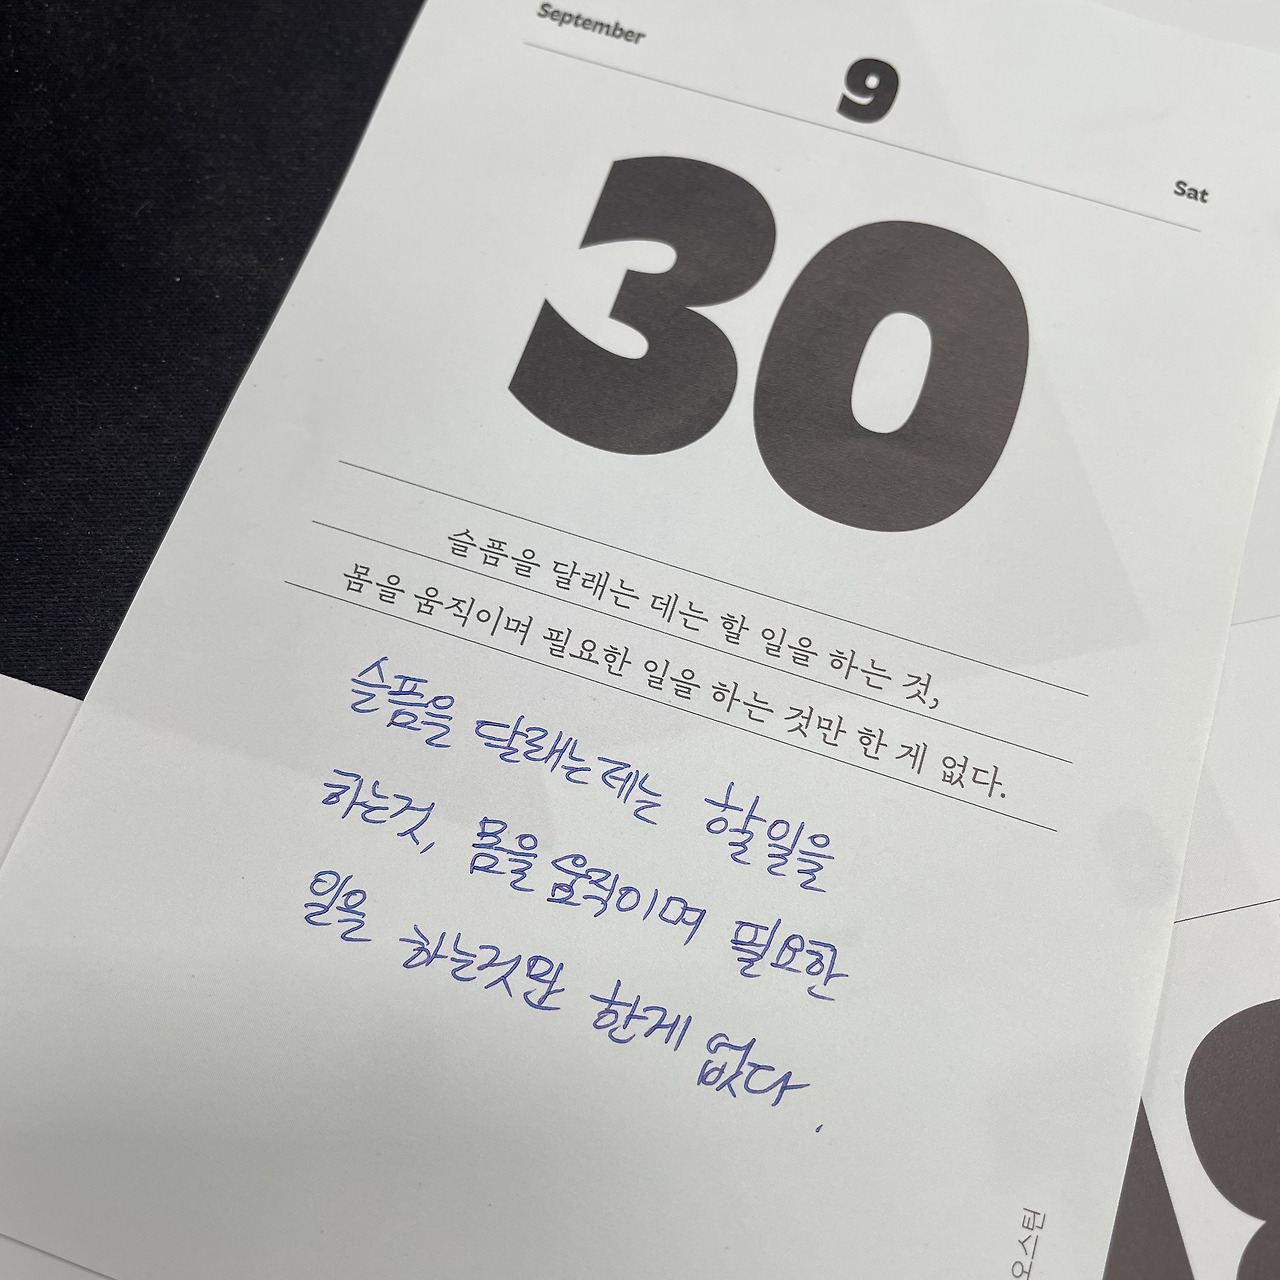 September
9
Sat
30
슬픔을 달래는 데는 할 일을 하는 것,
몸을 움직이며 필요한 일을 하는 것만 한 게 없다.
슬픔을 달래는데는 할일을
하는것, 몸을 움직이며 필요한
일을 하는것만 한게 없다.
오스틴